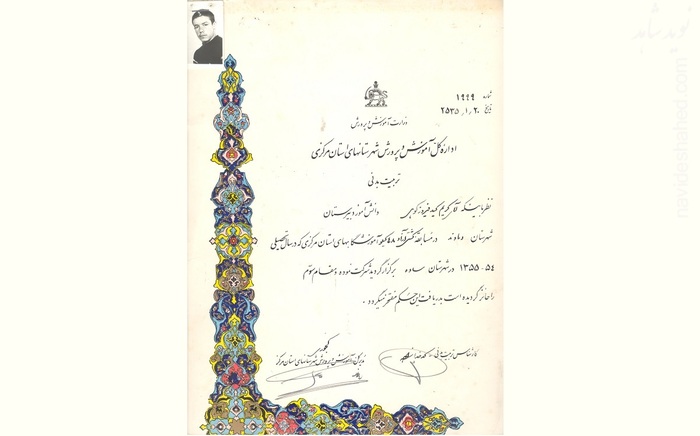 شماره ۱۹۹۹
تاریخ ۲۵۳۵/۱/۲۰
وزارت آموزش و پرورش
اداره کل آموزش و پرورش شهرستانهای استان مرکزی
تربیت بدنی
نظر باینکه آقای کریم فیروزکوهی دانش آموز دبیرستان
شهرستان دماوند در مسابقه کشتی آزاد ۴۸ کیلو آموزشگاههای استان مرکزی که در سال تحصیلی
۱۳۵۵-۵۴ در شهرستان ساوه برگزار گردید شرکت نموده و مقام سوم
را حائز گردیده است بدریافت این حکم مفتخر میگردد.
کارشناس تربیت بدنی
مدیر کل آموزش و پرورش شهرستانهای استان مرکزی
نوید شاهد
navideshahed.com